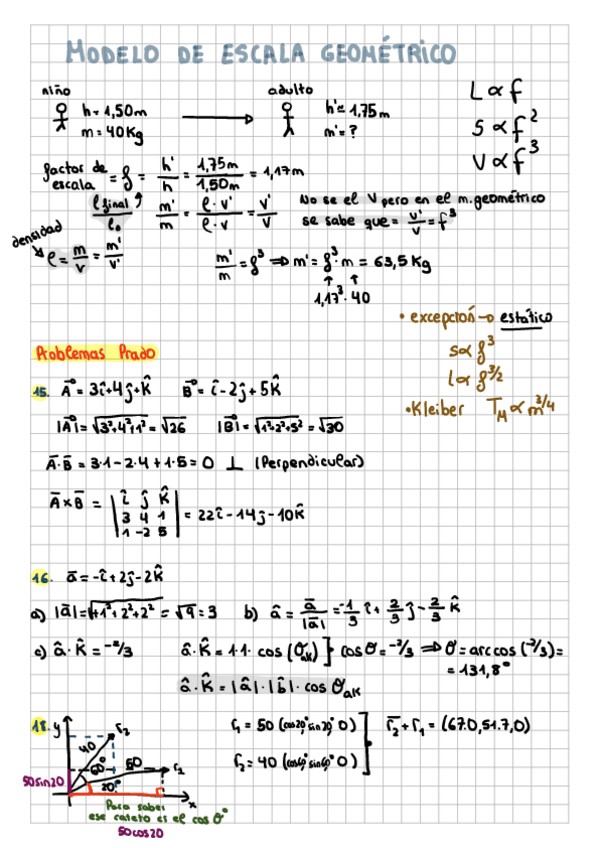 MODELO DE ESCALA GEOMÉTRICO
niño
h = 1,50m
m = 40Kg
adulto
h' = 1,75m
m' = ?
L ∝ f
S ∝ f²
V ∝ f³
factor de escala = f = h'/h = 1,75m/1,50m = 1,17m
ℓ final/ℓ₀
m'/m = ρ·v'/ρ·v = v'/v
No se el V pero en el m. geométrico
se sabe que = v'/v = f³
densidad
ρ = m/v = m'/v'
m'/m = f³ ⇒ m' = f³·m = 63,5 Kg
1,17³·40
• excepción → estático
S∝ f³
l∝ f^3/2
• Kleiber T_M ∝ m^3/4
Problemas Prado
15. A⃗ = 3î+4ĵ+k̂ B⃗ = î-2ĵ+5k̂
|A⃗| = √3²+4²+1² = √26 |B⃗| = √1²+2²+5² = √30
A·B = 3·1-2·4+1·5 = 0 ⊥ (Perpendicular)
A×B = | î ĵ k̂ |
3 4 1
1 -2 5
= 22î-14ĵ-10k̂
16. a = -î+2ĵ-2k̂
a) |a| = √+1²+2²+2² = √9 = 3 b) â = a/|a| = -1/3 î + 2/3 ĵ - 2/3 k̂
c) â·k̂ = -2/3 â·k̂ = 1·1·cos(θak) } cos θ = -2/3 ⇒ θ = arccos(-2/3) =
= 131,8°
â·k̂ = |â|·|b̂|·cos θak
18. y
r₂
40
60°
50
r₁
20°
x
50sin20
Para saber
ese cateto es el cos θ°
50cos20
r₁ = 50 (cos20° sin20° 0)
r₂ = 40 (cos60° sin60° 0)
r₂ + r₁ = (67.0,51.7,0)